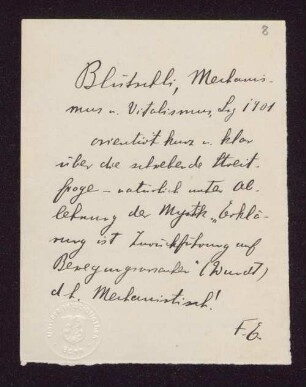 8
Blütschli, Mechanis-
mus u. Vitalismus, Lzg 1901
orientirt kurz u. klar
über die schwebende Streit-
frage – natürlich unter Ab-
lehnung der Mystik. „Erklä-
rung ist Zurückführung auf
Bewegungsursachen" (Wundt)
d. h. Mechanistisch!
F. E.